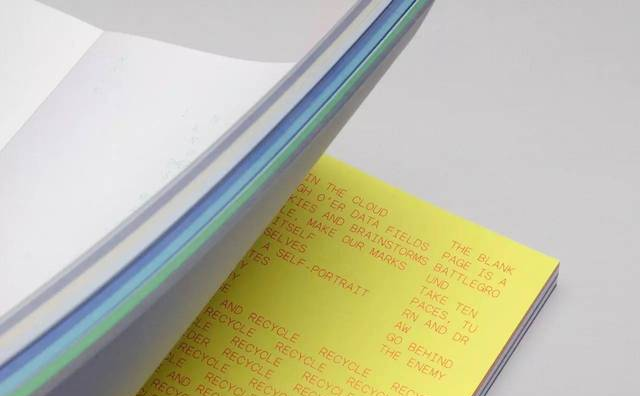 IN THE CLOUD
GH O'ER DATA FIELDS
KIES AND BRAINSTORMS
LE, MAKE OUR MARKS
ITSELF
SELVES
TES A SELF-PORTRAIT
Y
E
AND RECYCLE
CLE RECYCLE RECYCLE RECYCLE
DER RECYCLE RECYCLE RECYCLE
CLE RECYCLE RECYCLE
AND RECYCLE RECYCLE
THE BLANK
PAGE IS A
BATTLEGRO
UND
TAKE TEN
PACES, TU
RN AND DR
AW
GO BEHIND
THE ENEMY